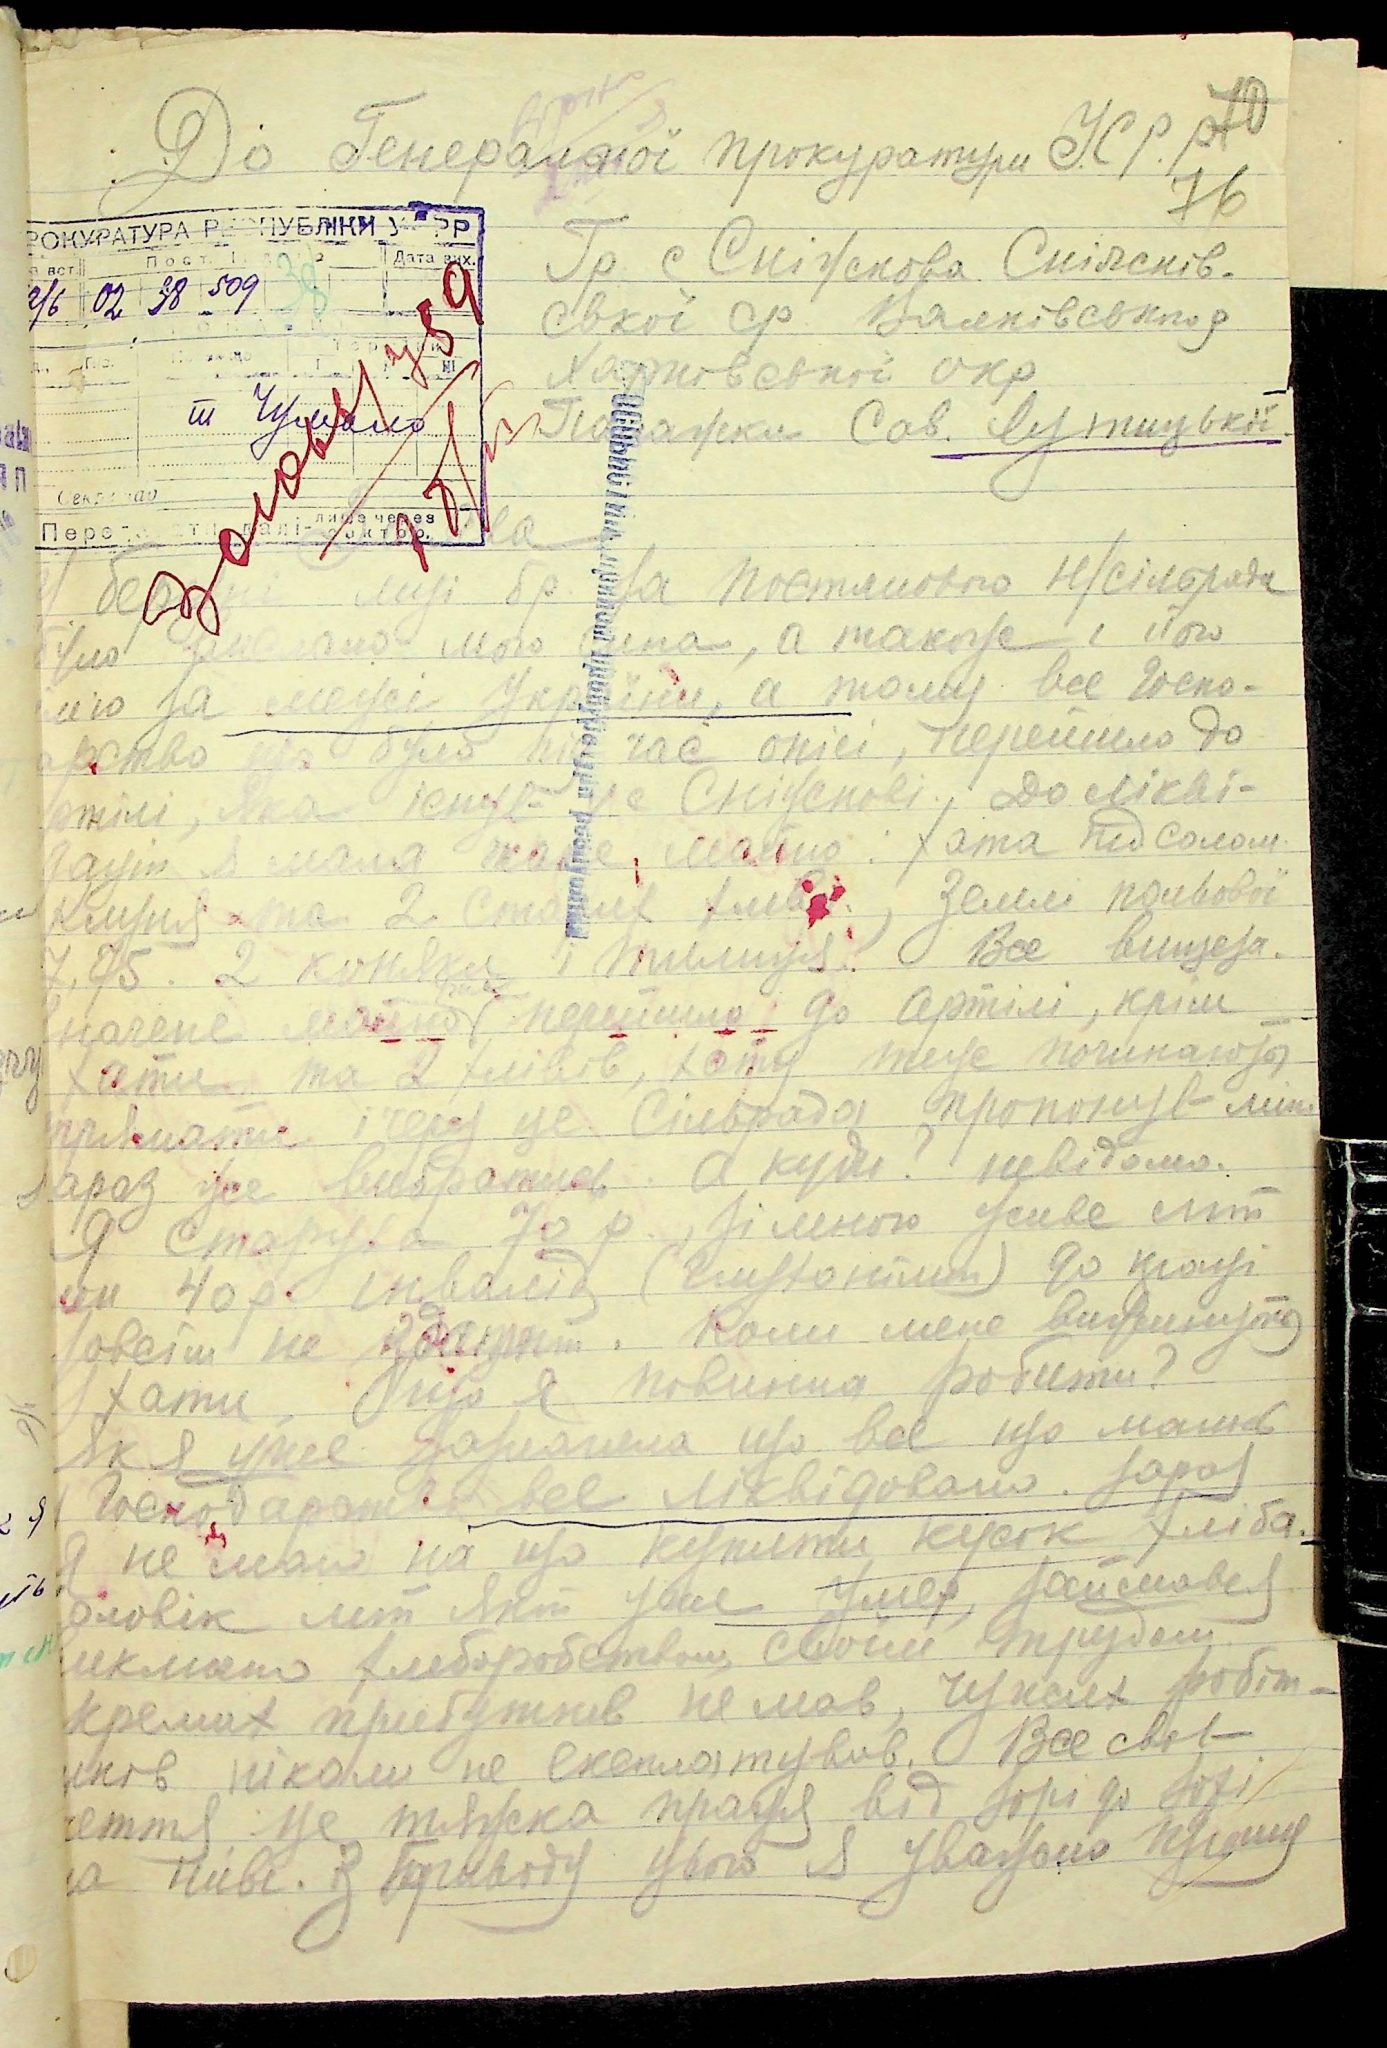 До Генеральної прокуратури УСРР
70
76
ПРОКУРАТУРА РЕСПУБЛІКИ УСРР
Дата вих.
02 38 509 38
т Чумано
Секретар
лише через
сектор.
Гр с Сніжкова Сніжків-
ської ср Валківського р
Харковської окр
Палажки Сав. Лутицької
У березні місяці б р. за постановою Н/сільради
було вислано мого сина, а також і його
сім'ю за межі України, а тому все Госпо-
дарство що було під час описі, перейшло до
артілі, яка існує в с Сніжкові, до лікві-
дації я мала таке майно: хата під солом.
клуня та 2 старих хліви, землі польової
7,75. 2 коняки і телиця. Все вищеза-
значене майно перейшло до артілі, крім
хати та 2 хлівів, хату теж починають
приймати і через це Сільрада пропонує мині
зараз же вибратись. А куди? невідомо.
Я старуха 70 р., зі мною живе мій
син 40 р. інвалід (глухонімий) до праці
зовсім не здатний. Коли мене виженуть з
хати, що я повинна робити?
Як я уже зазначила що все що мали в
Господарстві все ліквідовано. зараз
я не маю на що купити кусок хліба.
Чоловік мій який уже умер, займався
виключно хліборобством, своїм трудом.
окремих прибутків не мав, чужих робіт-
ників ніколи не експлатував. Все своє
життя це тяжка праця від зорі до зорі
на ниві. З приводу цього я уважно прошу